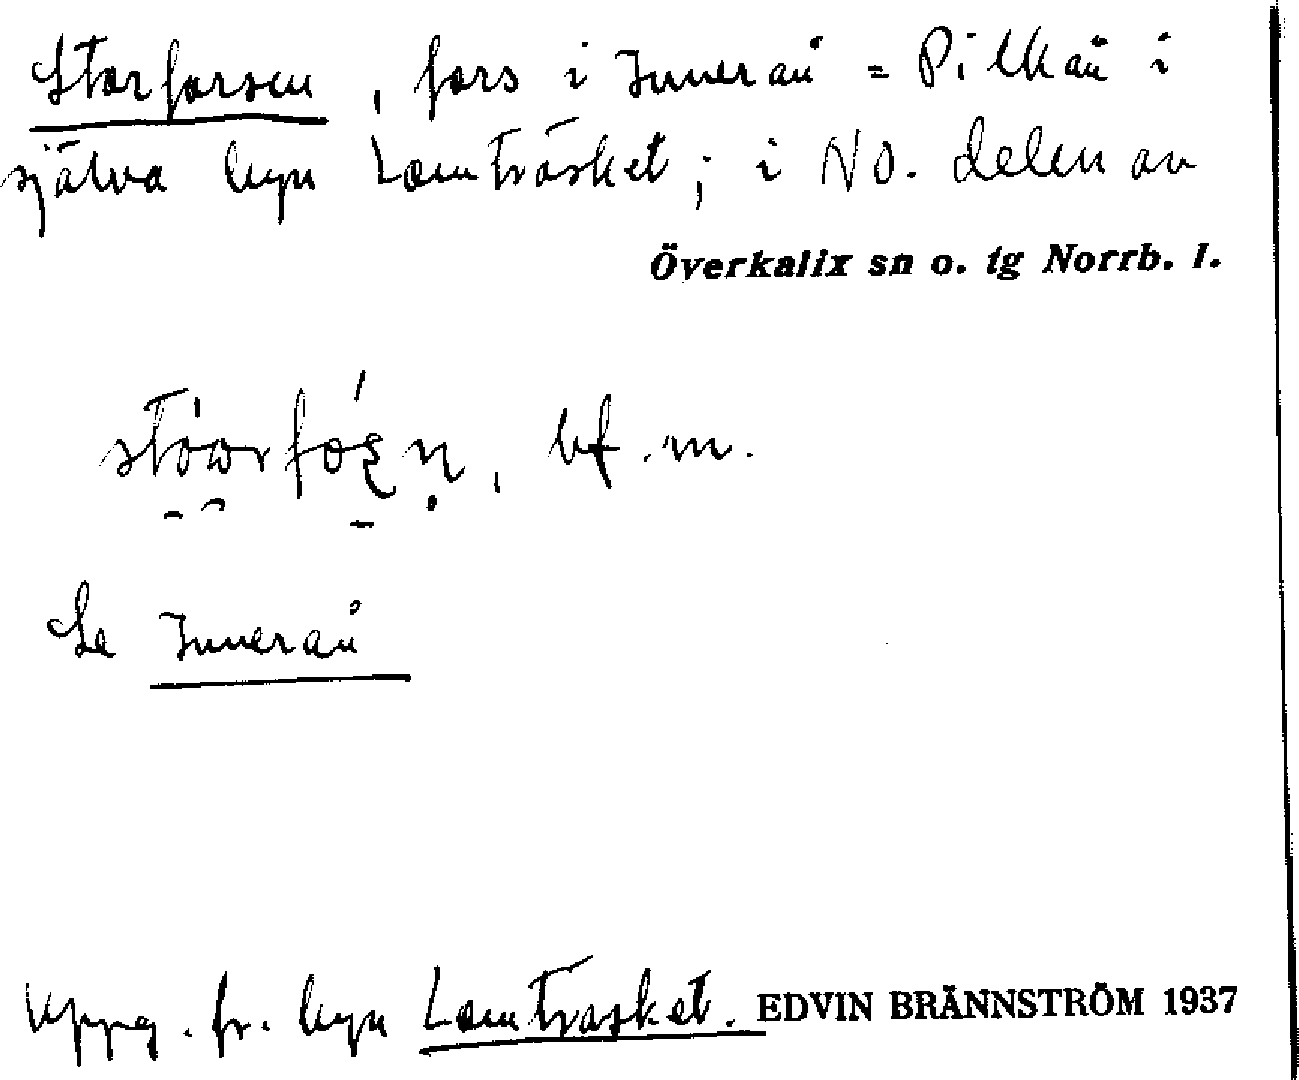 Storforsen, fors i Inneraň = Pilkån i
själva byn Lomträsket; i NO. delen av
Överkalix sn o. tg Norrb. l.
bf. m.
Se Inneraån
Uppg. fr. byn Lomträsket. EDVIN BRÄNNSTRÖM 1937